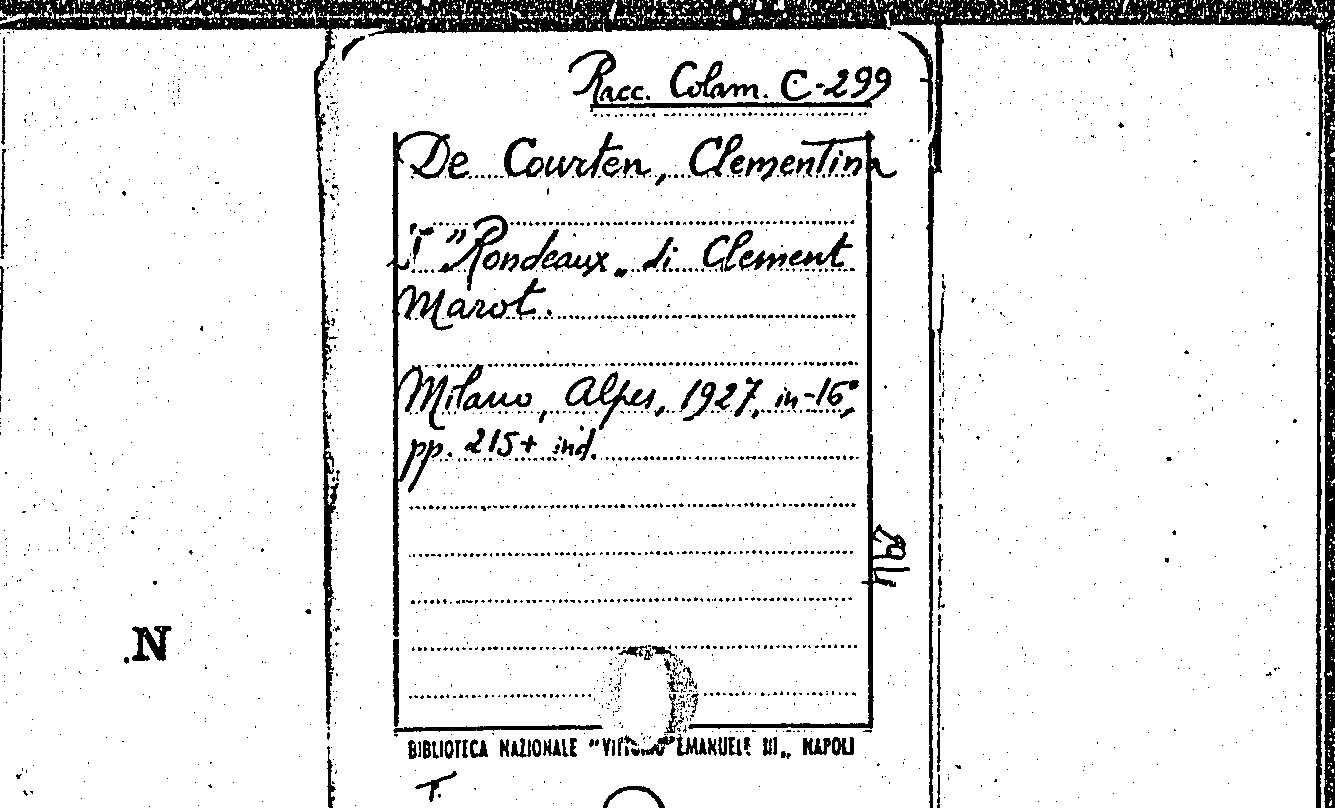 Racc. Colam. C-299
De Courten, Clementina
I "Rondeaux„ di Clement
Marot.
Milano, Alpes, 1927, in-16°,
pp. 215+ ind.
.N
BIBLIOTECA NAZIONALE "VITTORIO EMANUELE III„ NAPOLI
T.